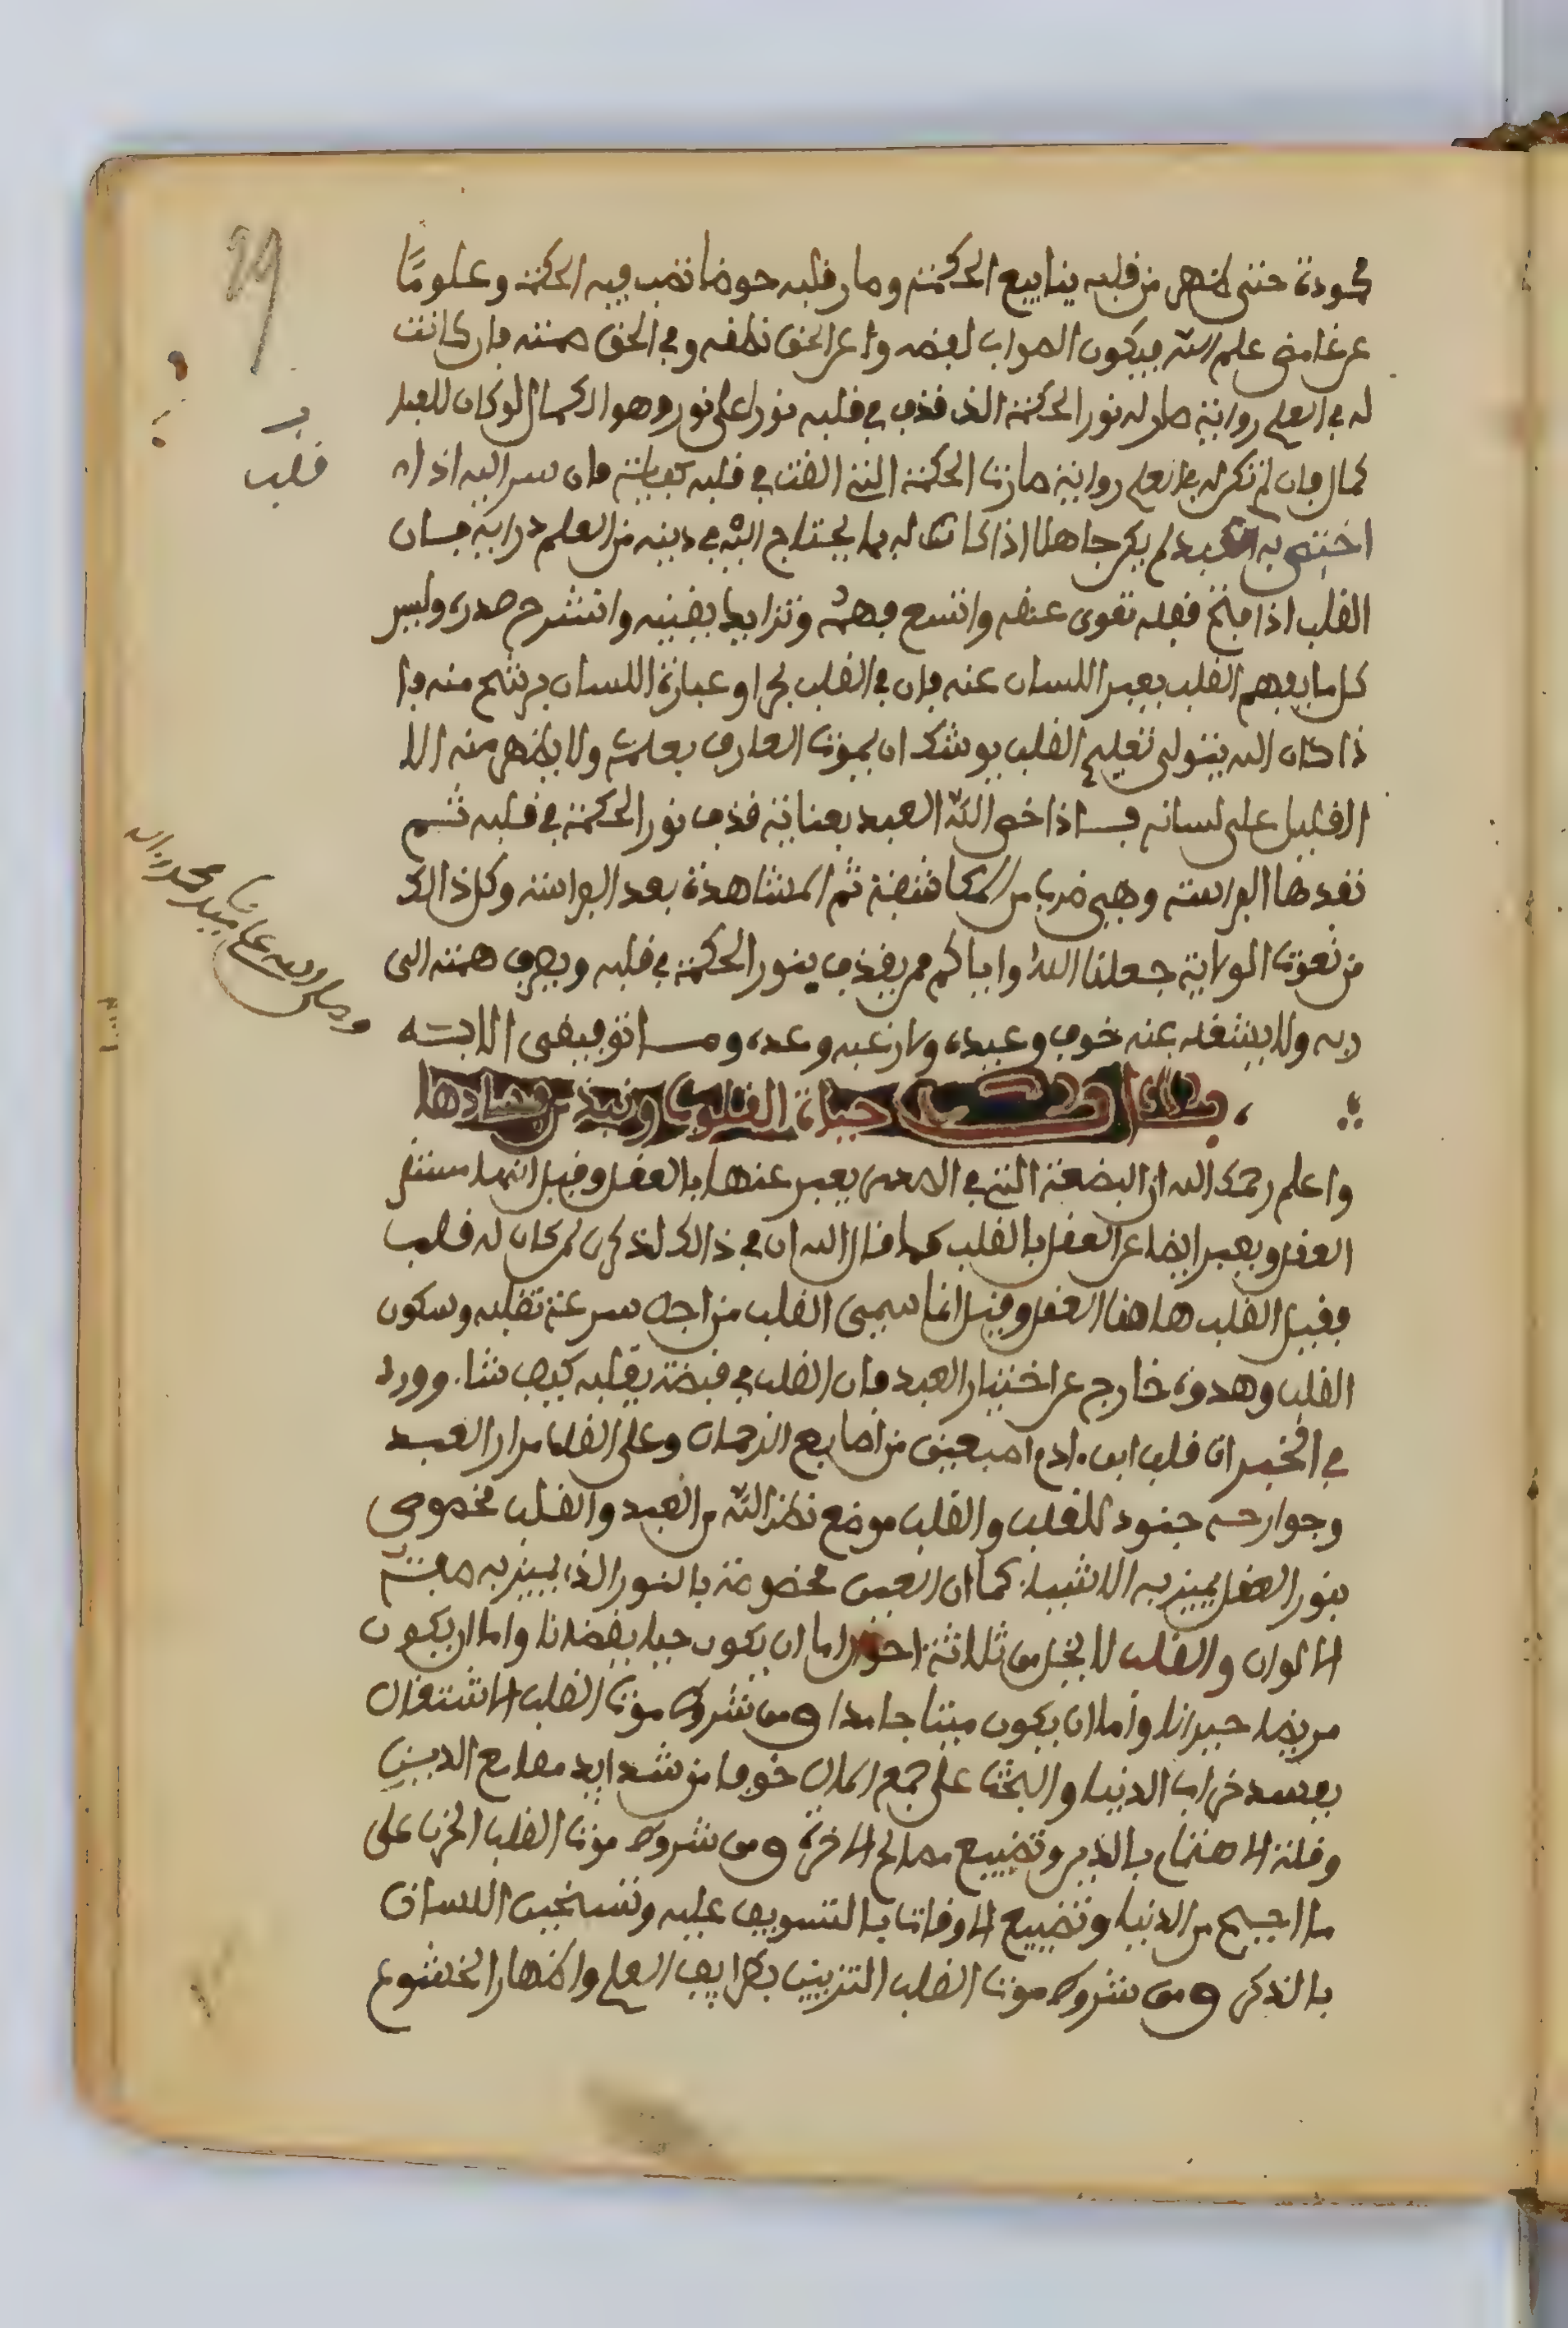 محمودة حتى تظهر من قلبه ينابيع الحكمة وصار قلبه حوضا تصب فيه الحكمة وعلومًا
عن غامض علم الله فيكون الصواب لفضه وا عن الحق نطقه وفي الحق همته فإن كانت
له في العلم رواية صار له نور الحكمة الذي قذف في قلبه نورا على نور وهو الكمال لو كان للعبد
كمال فإن لم تكن له في العلم رواية صارت الحكمة التي القت في قلبه كفاية فإن سر الله اذا
اختص به العبد لم يكن جاهلا اذا كانت له بما يحتاج اليه في دينه من العلم دراية فإن
القلب اذا فتح قفله تقوى عقله واتسع فهمه وتزايد يقينه وانشرح صدره وليس
كل ما يفهم القلب يعبر اللسان عنه فإن في القلب بحرا وعبارة اللسان ترشح منه فإ
ذا كان الله يتولى تعليم القلب يوشك ان يموت العارف بعلمه ولا يظهر منه الا
القليل على لسانه فاذا خص الله العبد بعناية قذف نور الحكمة في قلبه ثم
تفدها الفراسة وهي ضرب من المكاشفة ثم المشاهدة بعد الفراسة وكل ذالك
من نعوت الولاية جعلنا الله واياكم ممن يقذف بنور الحكمة في قلبه ويصرف همته الى
ربه ولا يشغله عنه خوف وعيده ولا رغبه وعده وما توفيقي الا بالله
باب في حياة القلوب ونبذ من فسادها
واعلم رحمك الله ان البضعة التي في الصدر يعبر عنها بالعقل وقيل انها مستقر
العقل ويعبر ايضا عن العقل بالقلب كما قال الله ان في ذالك لذكرى لمن كان له قلب
فقيل القلب هاهنا العقل وقيل انما سمي القلب من اجل سرعة تقلبه وسكون
القلب وهدوه خارج عن اختيار العبد فإن القلب في قبضة يقلبه كيف شاء وورد
في الخبر ان قلب ابن ادم اصبعين من اصابع الرحمان وعلى القلب مدار العبد
وجوارحه جنود للقلب والقلب موضع نظر الله من العبد والقلب مخصوص
بنور العقل يميز به الاشياء كما ان العين مخصوصة بالنور الذي يميز به صفة
الالوان والقلب لا يخل من ثلاثة احوال اما ان يكون حيا يقضانا واما ان يكون
مريضا حيرانا واما ان يكون ميتا جامدا ومن شروط موت القلب الاشتغال
بفسد خراب الدنيا والبحث على جمع المال خوفا من شدايد مطامع الدين
وقلة الاهتمام بالدين وتضييع مصالح الاخرة ومن شروط موت القلب الحزن على
ما اجيح من الدنيا وتضييع الاوقات بالتسويف عليه وتسخين اللسان
بالذكر ومن شروط موت القلب التزيين بطرايف العلم واظهار الخشوع
قلب